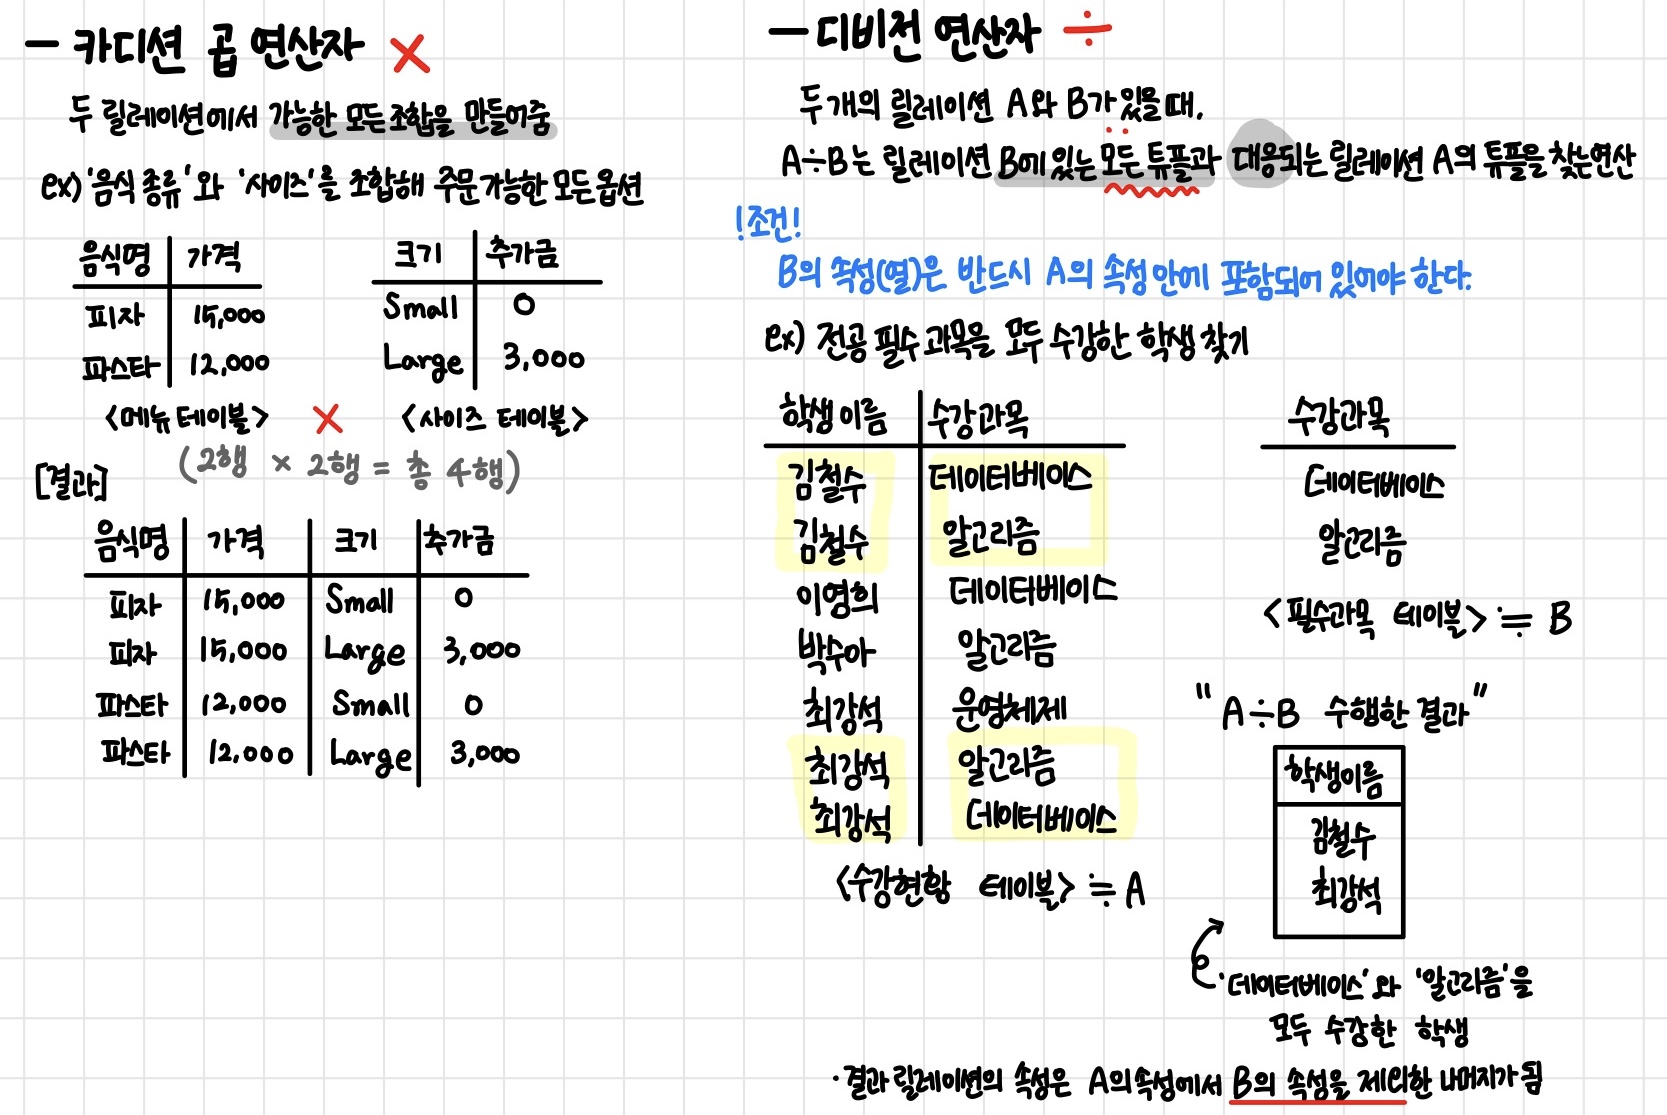 - 카디션 곱 연산자 ×
두 릴레이션에서 가능한 모든 조합을 만들어줌
ex) '음식 종류'와 '사이즈'를 조합해 주문 가능한 모든 옵션
음식명 가격
피자 15,000
파스타 12,000
<메뉴 테이블>
×
크기 추가금
Small 0
Large 3,000
<사이즈 테이블>
(2행 × 2행 = 총 4행)
[결과]
음식명 가격 크기 추가금
피자 15,000 Small 0
피자 15,000 Large 3,000
파스타 12,000 Small 0
파스타 12,000 Large 3,000
- 디비전 연산자 ÷
두 개의 릴레이션 A와 B가 있을 때,
A÷B는 릴레이션 B에 있는 모든 튜플과 대응되는 릴레이션 A의 튜플을 찾는 연산
!조건!
B의 속성(열)은 반드시 A의 속성 안에 포함되어 있어야 한다.
ex) 전공 필수 과목을 모두 수강한 학생 찾기
학생 이름 수강과목
김철수 데이터베이스
김철수 알고리즘
이영희 데이터베이스
박수아 알고리즘
최강석 운영체제
최강석 알고리즘
최강석 데이터베이스
<수강현황 테이블> ≒ A
수강과목
데이터베이스
알고리즘
<필수과목 테이블> ≒ B
"A÷B 수행한 결과"
학생이름
김철수
최강석
'데이터베이스'와 '알고리즘'을
모두 수강한 학생
· 결과 릴레이션의 속성은 A의 속성에서 B의 속성을 제외한 나머지가 됨